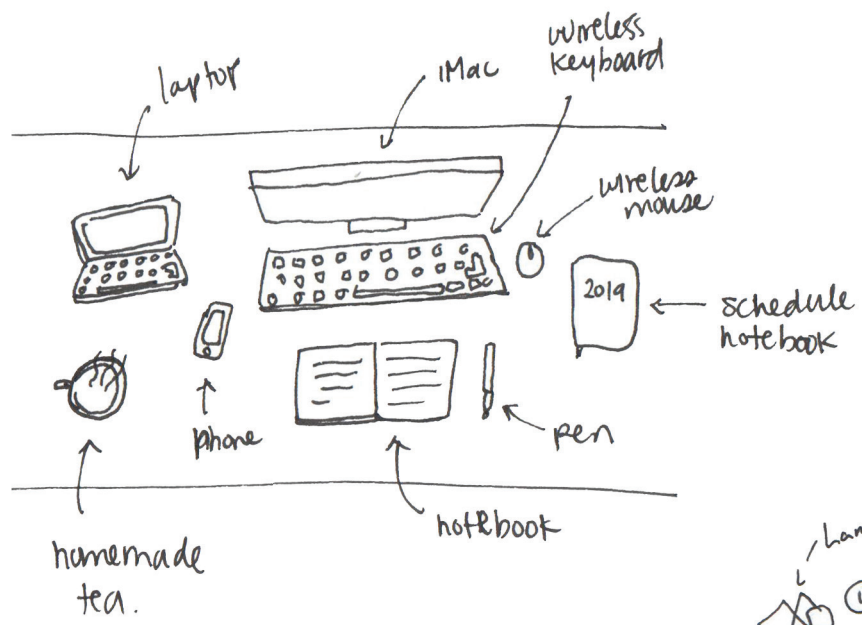 laptop
iMac
wireless
keyboard
wireless
mouse
2019
schedule
notebook
phone
pen
notebook
homemade
tea.